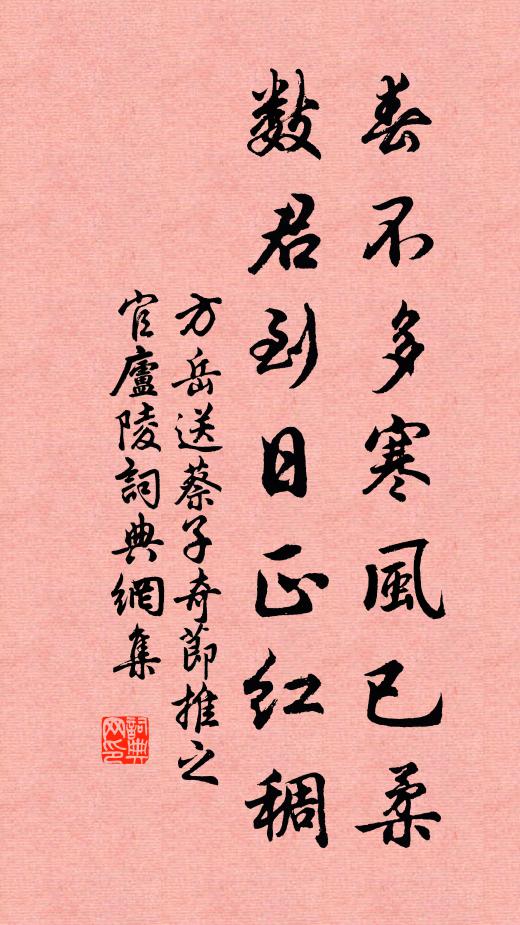 春不多寒風已柔
數君到日正紅稠
方岳送蔡子奇節推之
官廬陵詞典網集
詞典
网印